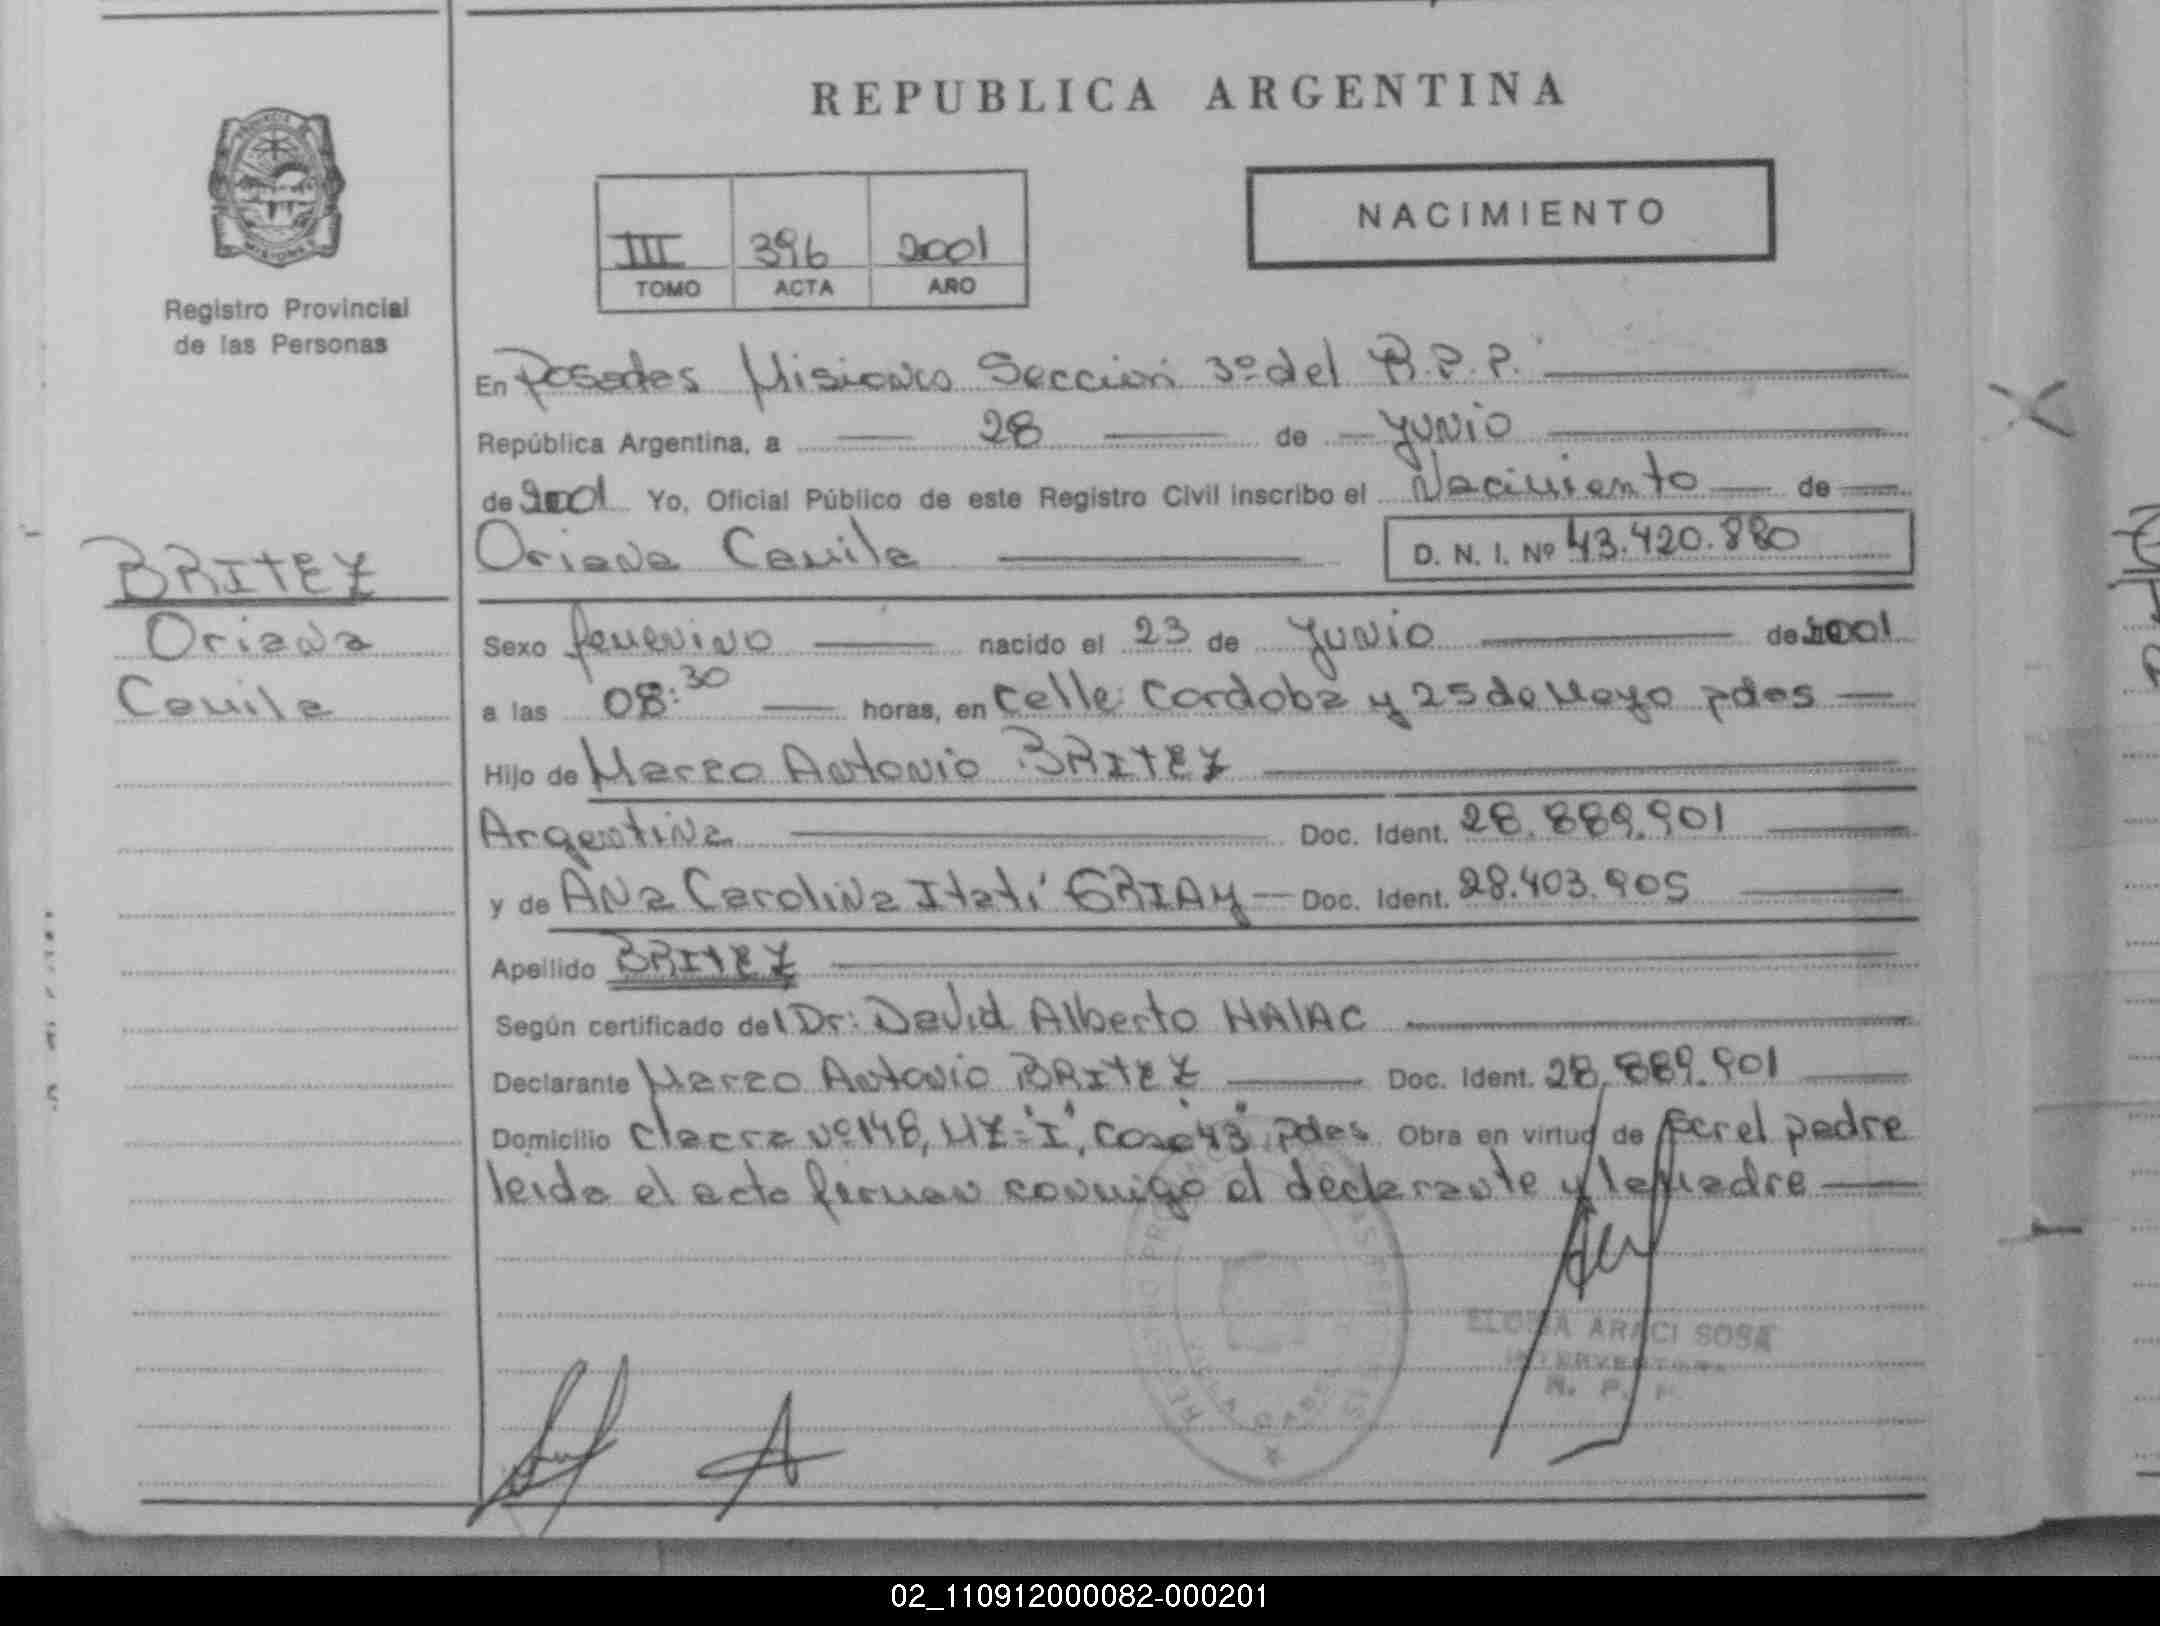 REPUBLICA ARGENTINA
Registro Provincial
de las Personas
III 396 2001
TOMO ACTA AÑO
NACIMIENTO
En Posadas Misiones Sección 3º del R.P.P.
República Argentina, a 28 de Junio
de 2001 Yo, Oficial Público de este Registro Civil inscribo el Nacimiento de
Oriana Camila D. N. I. Nº 43.420.880
BRITEZ
Oriana
Camila
Sexo femenino nacido el 23 de Junio de 2001
a las 08:30 horas, en Calle Cordoba y 25 de Mayo pdas
Hijo de Marco Antonio BRITEZ
Argentina Doc. Ident. 28.889.901
y de Ana Carolina Itatí GRIAY Doc. Ident. 28.403.905
Apellido BRITEZ
Según certificado del Dr: David Alberto HALAC
Declarante Marco Antonio BRITEZ Doc. Ident. 28.889.901
Domicilio Chacra Nº 148, MZ "I", Casa 43 pdas Obra en virtud de ser el padre
leida el acta firman conmigo el declarante y la madre
ARACI SOSA
INTERVENTORA
R. P. P.
02_110912000082-000201